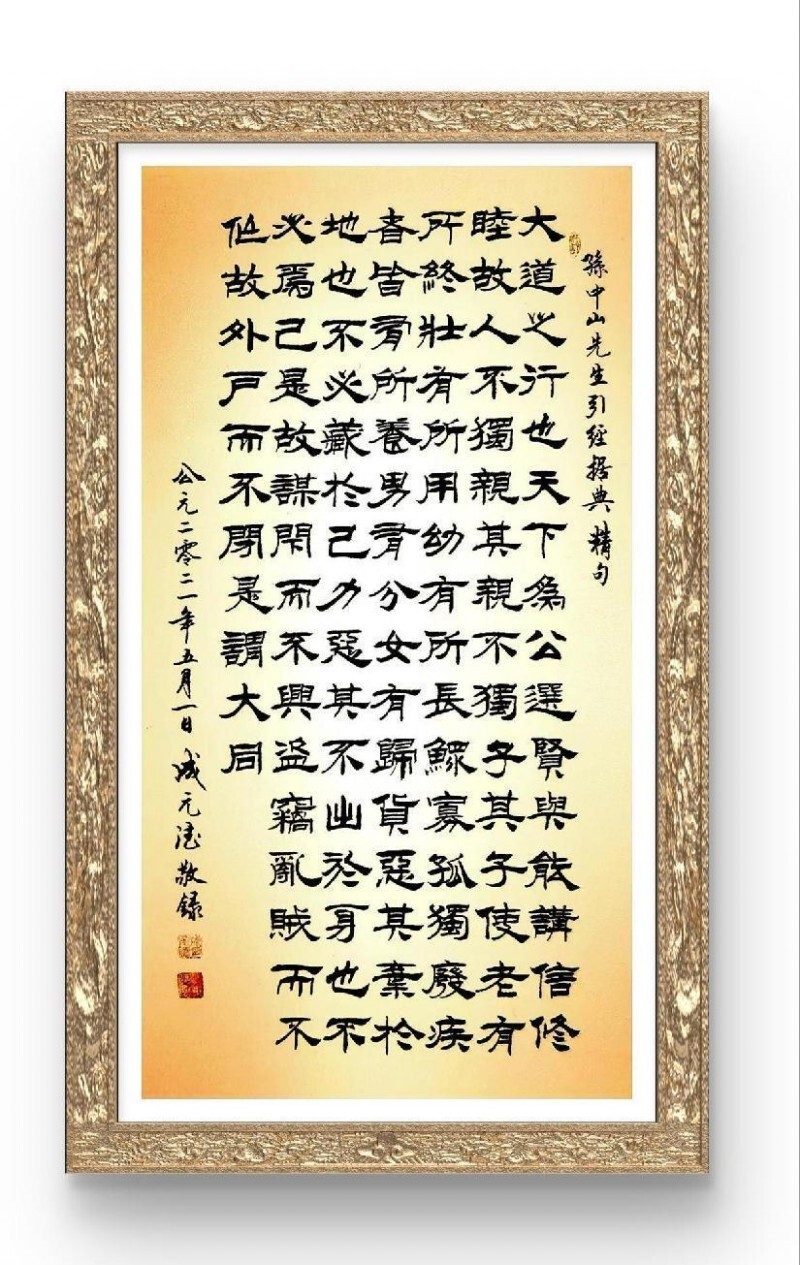 孫中山先生引經据典精句
大道之行也天下為公選賢與能講信修
睦故人不獨親其親不獨子其子使老有
所終壯有所用幼有所長鰥寡孤獨廢疾
者皆有所養男有分女有歸貨惡其棄於
地也不必藏於己力惡其不出於身也不
必為己是故謀閉而不興盜竊亂賊而不
作故外戶而不閉是謂大同
公元二零二一年五月一日 成元敬録